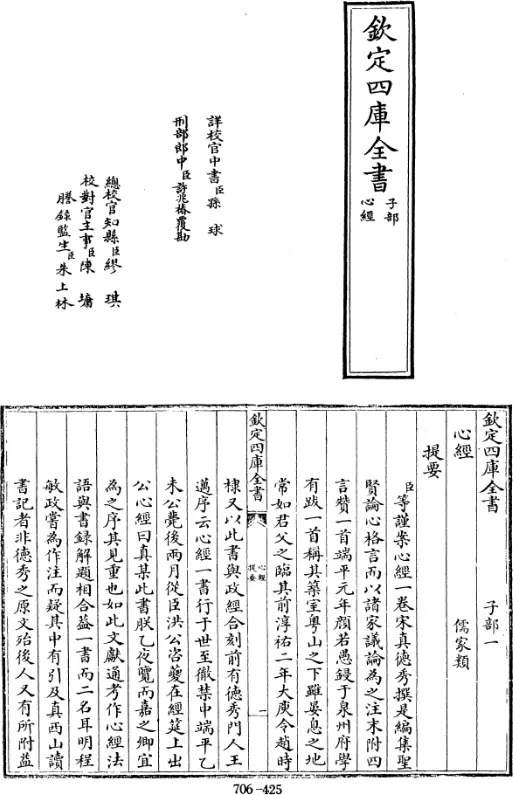 欽定四庫全書
子部
心經
詳校官中書臣孫球
刑部郎中臣許兆椿覆勘
總校官知縣臣繆琪
校對官主事臣陳墉
謄錄監生臣朱上林
欽定四庫全書
子部一
心經
儒家類
提要
臣等謹案心經一卷宋真德秀撰是編集聖
賢論心格言而以諸家議論為之注末附四
言贊一首端平元年顔若愚鋟于泉州府學
有跋一首稱其築室粤山之下雖晏息之地
常如君父之臨其前淳祐二年大庾令趙時
欽定四庫全書
心經
提要
一
棣又以此書與政經合刻前有德秀門人王
邁序云心經一書行于世至徹禁中端平乙
未公薨後兩月從臣洪公咨夔在經筵上出
公心經曰真某此書朕乙夜覽而嘉之卿宜
為之序其見重也如此文獻通考作心經法
語與書録解題相合葢一書而二名耳明程
敏政嘗為作注而疑其中有引及真西山讀
書記者非德秀之原文殆後人又有所附益
706-425